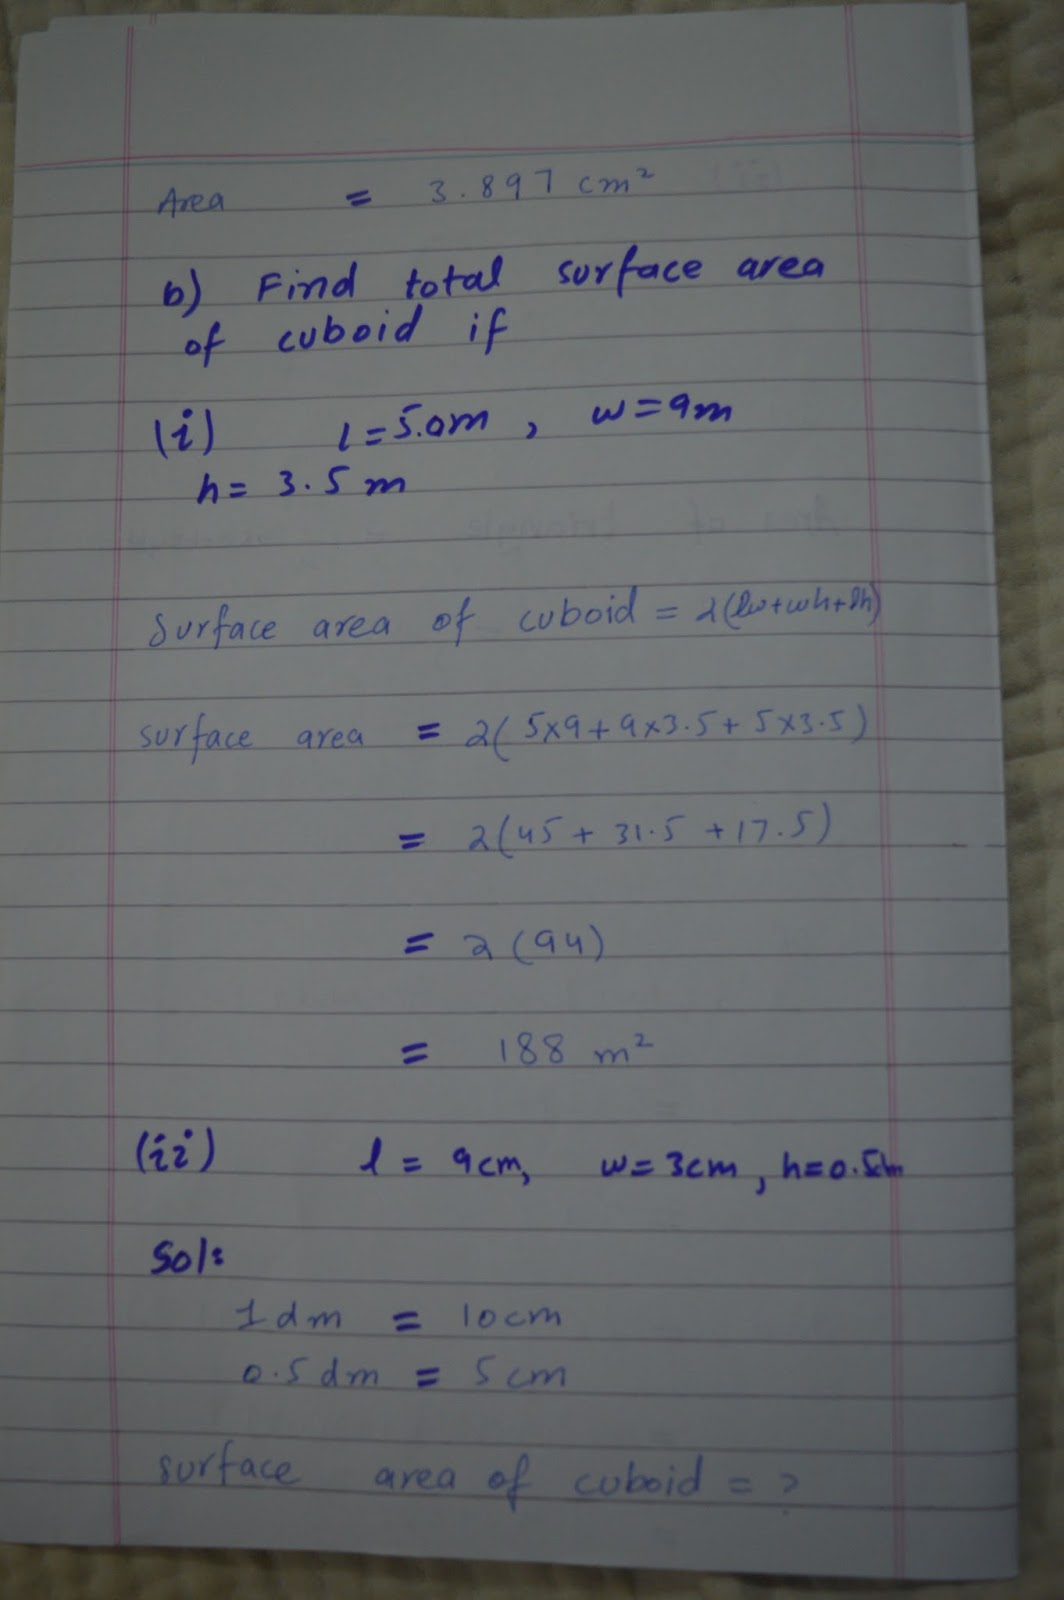 Area = 3.897 cm²
b) Find total surface area
of cuboid if
(i) l = 5.0m , w = 9m
h = 3.5 m
Surface area of cuboid = 2(lw+wh+lh)
surface area = 2( 5x9 + 9x3.5 + 5x3.5 )
= 2(45 + 31.5 + 17.5)
= 2 (94)
= 188 m²
(ii) l = 9cm, w = 3cm , h = 0.5dm
Sol:
1 dm = 10cm
0.5 dm = 5 cm
surface area of cuboid = ?